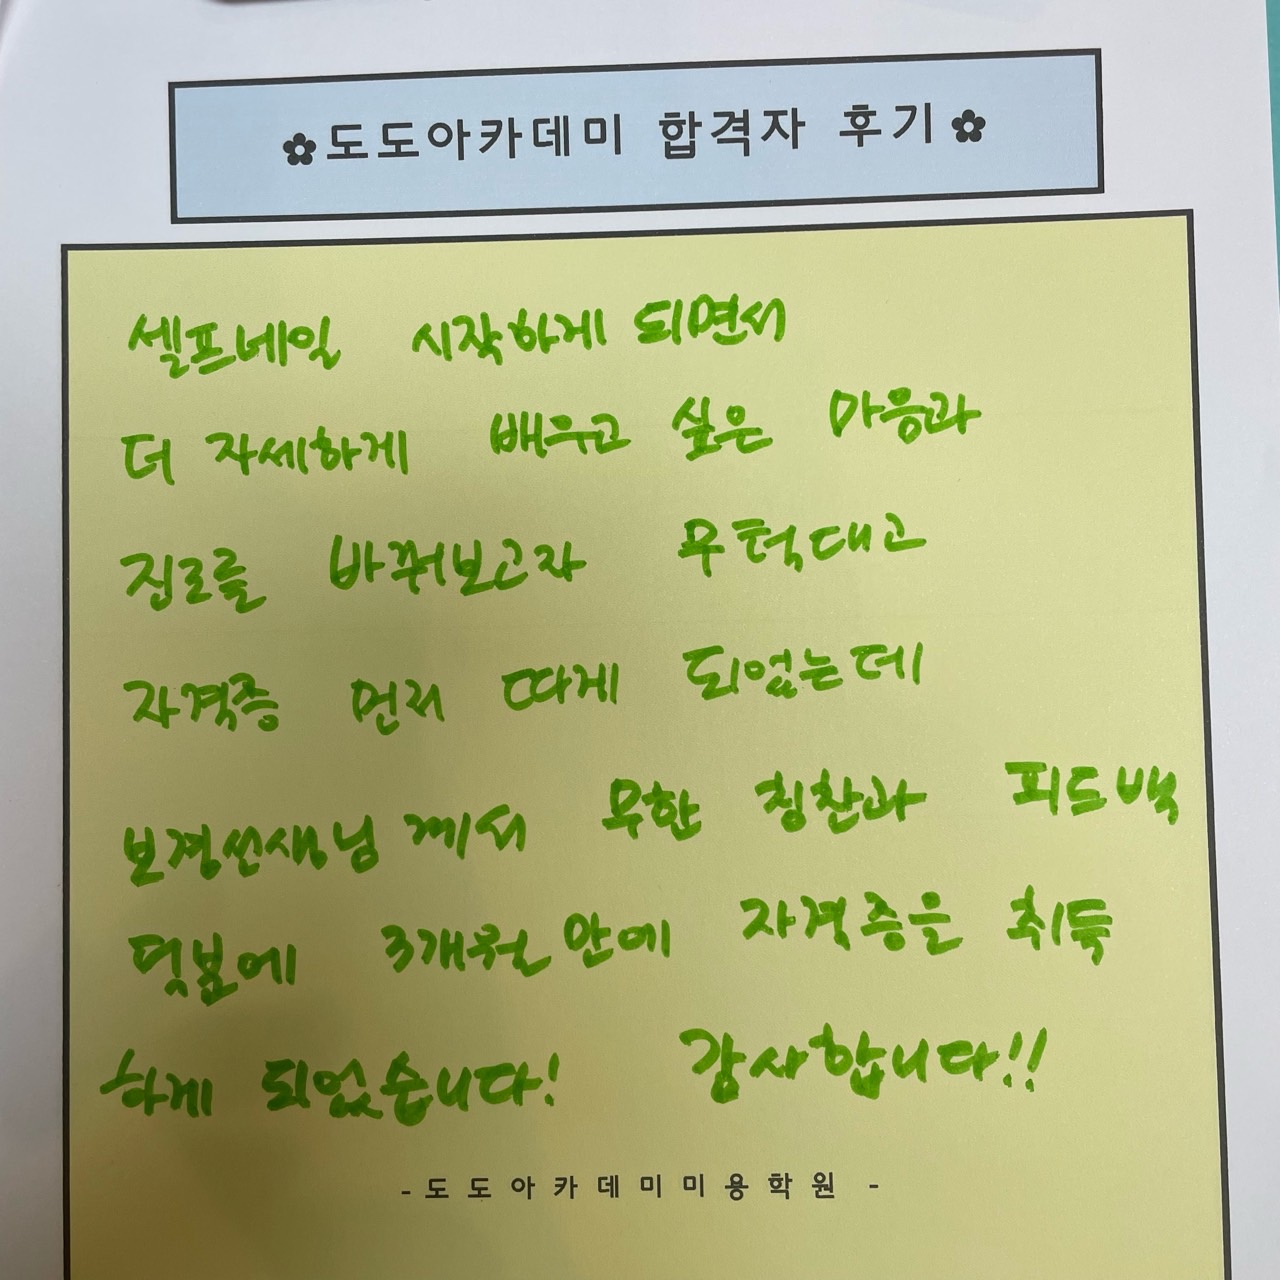 ✿도도아카데미 합격자 후기✿
셀프네일 시작하게 되면서
더 자세하게 배우고 싶은 마음과
진로를 바꿔보고자 무턱대고
자격증 먼저 따게 되었는데
보경선생님께서 무한 칭찬과 피드백
덕분에 3개월 안에 자격증을 취득
하게 되었습니다! 감사합니다!!
- 도도아카데미미용학원 -